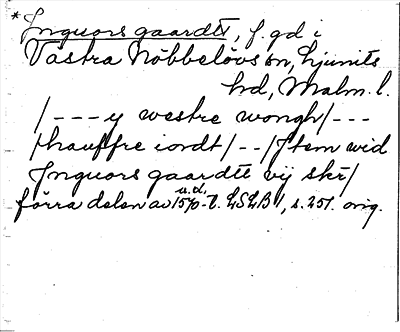 * Jnguors gaardtt, f. gd i
Västra Nöbbelövs sn, Ljunits
hd, Malm. l.
/---y westre wongh/---
/hauffre iordt/--/Jtem wid
Jnguors gaardtt vij skr/
förra delen av 1570-t. LSLB 1, s. 251. orig.
u.d.